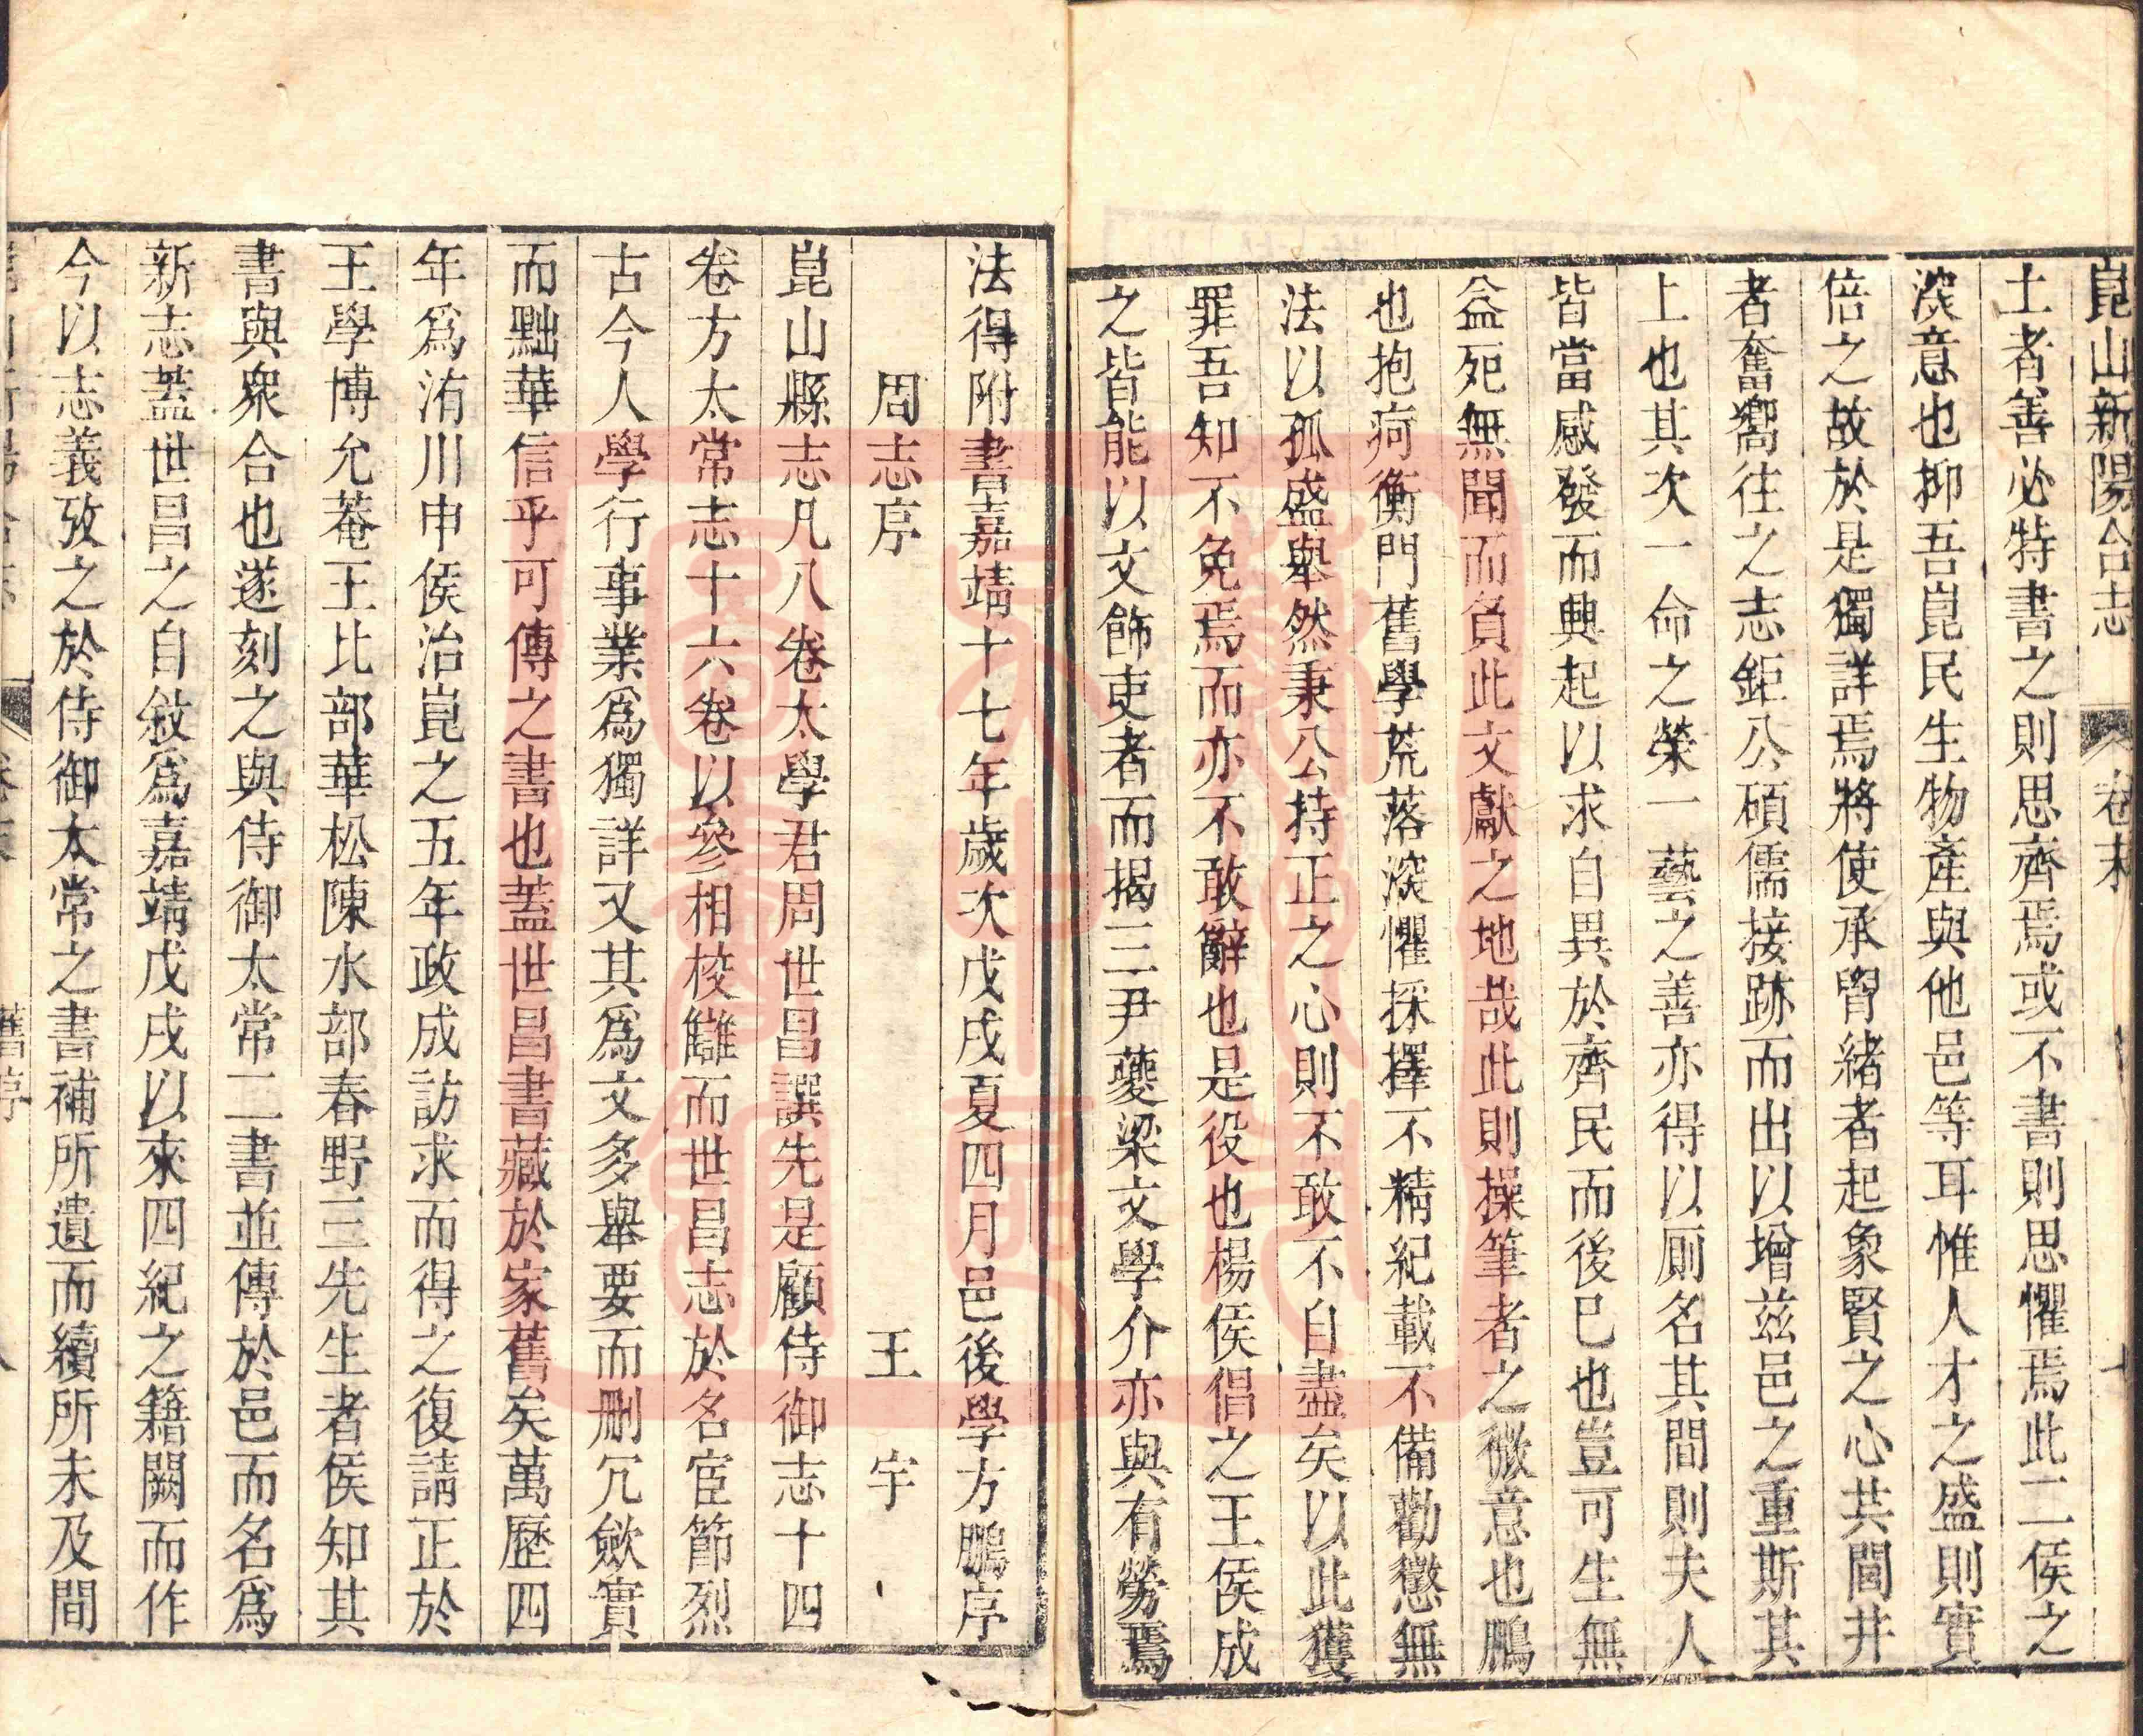 崑山新陽合志 卷末
土者善必特書之則思齊焉或不書則思懼焉此二侯之
深意也抑吾崑民生物產與他邑等耳惟人才之盛則實
倍之故於是獨詳焉將使承胥緒者起象賢之心共閭井
者奮嚮往之志鉅公碩儒接跡而出以增茲邑之重斯其
上也其次一命之榮一藝之善亦得以厠名其間則夫人
皆當感發而興起以求自異於齊民而後已也豈可生無
益死無聞而負此文獻之地哉此則操筆者之微意也鵬
也抱疴衡門舊學荒落深懼採擇不精紀載不備勸懲無
法以孤盛舉然秉公持正之心則不敢不自盡矣以此獲
罪吾知不免焉而亦不敢辭也是役也楊侯倡之王侯成
之皆能以文飾吏者而揭三尹夔梁文學介亦與有勞焉
法得附書嘉靖十七年歲次戊戌夏四月邑後學方鵬序
周志序 王宇
崑山縣志凡八卷太學君周世昌譔先是顧侍御志十四
卷方太常志十六卷以參相校讎而世昌志於名宦節烈
古今人學行事業爲獨詳又其爲文多舉要而刪冗斂實
而黜華信乎可傳之書也蓋世昌書藏於家舊矣萬歷四
年爲洧川申侯治崑之五年政成訪求而得之復請正於
王學博允菴王比部華松陳水部春野三先生者侯知其
書與衆合也遂刻之與侍御太常二書並傳於邑而名爲
新志蓋世昌之自敍爲嘉靖戊戌以來四紀之籍闕而作
今以志義攷之於侍御太常之書補所遺而續所未及間
舊序